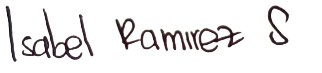 Isabel Ramirez S